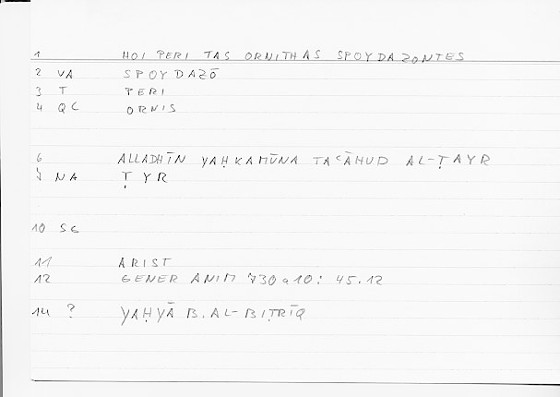 1 HOI PERI TAS ORNITHAS SPOYDAZONTES
2 VA SPOYDAZŌ
3 T PERI
4 QC ORNIS
6 ALLADHĪN YAḤKAMŪNA TAʿĀHUD AL-ṬAYR
7 NA ṬYR
10 SG
11 ARIST
12 GENER ANIM 730 a 10: 45.12
14 ? YAḤYĀ B. AL-BIṬRĪQ